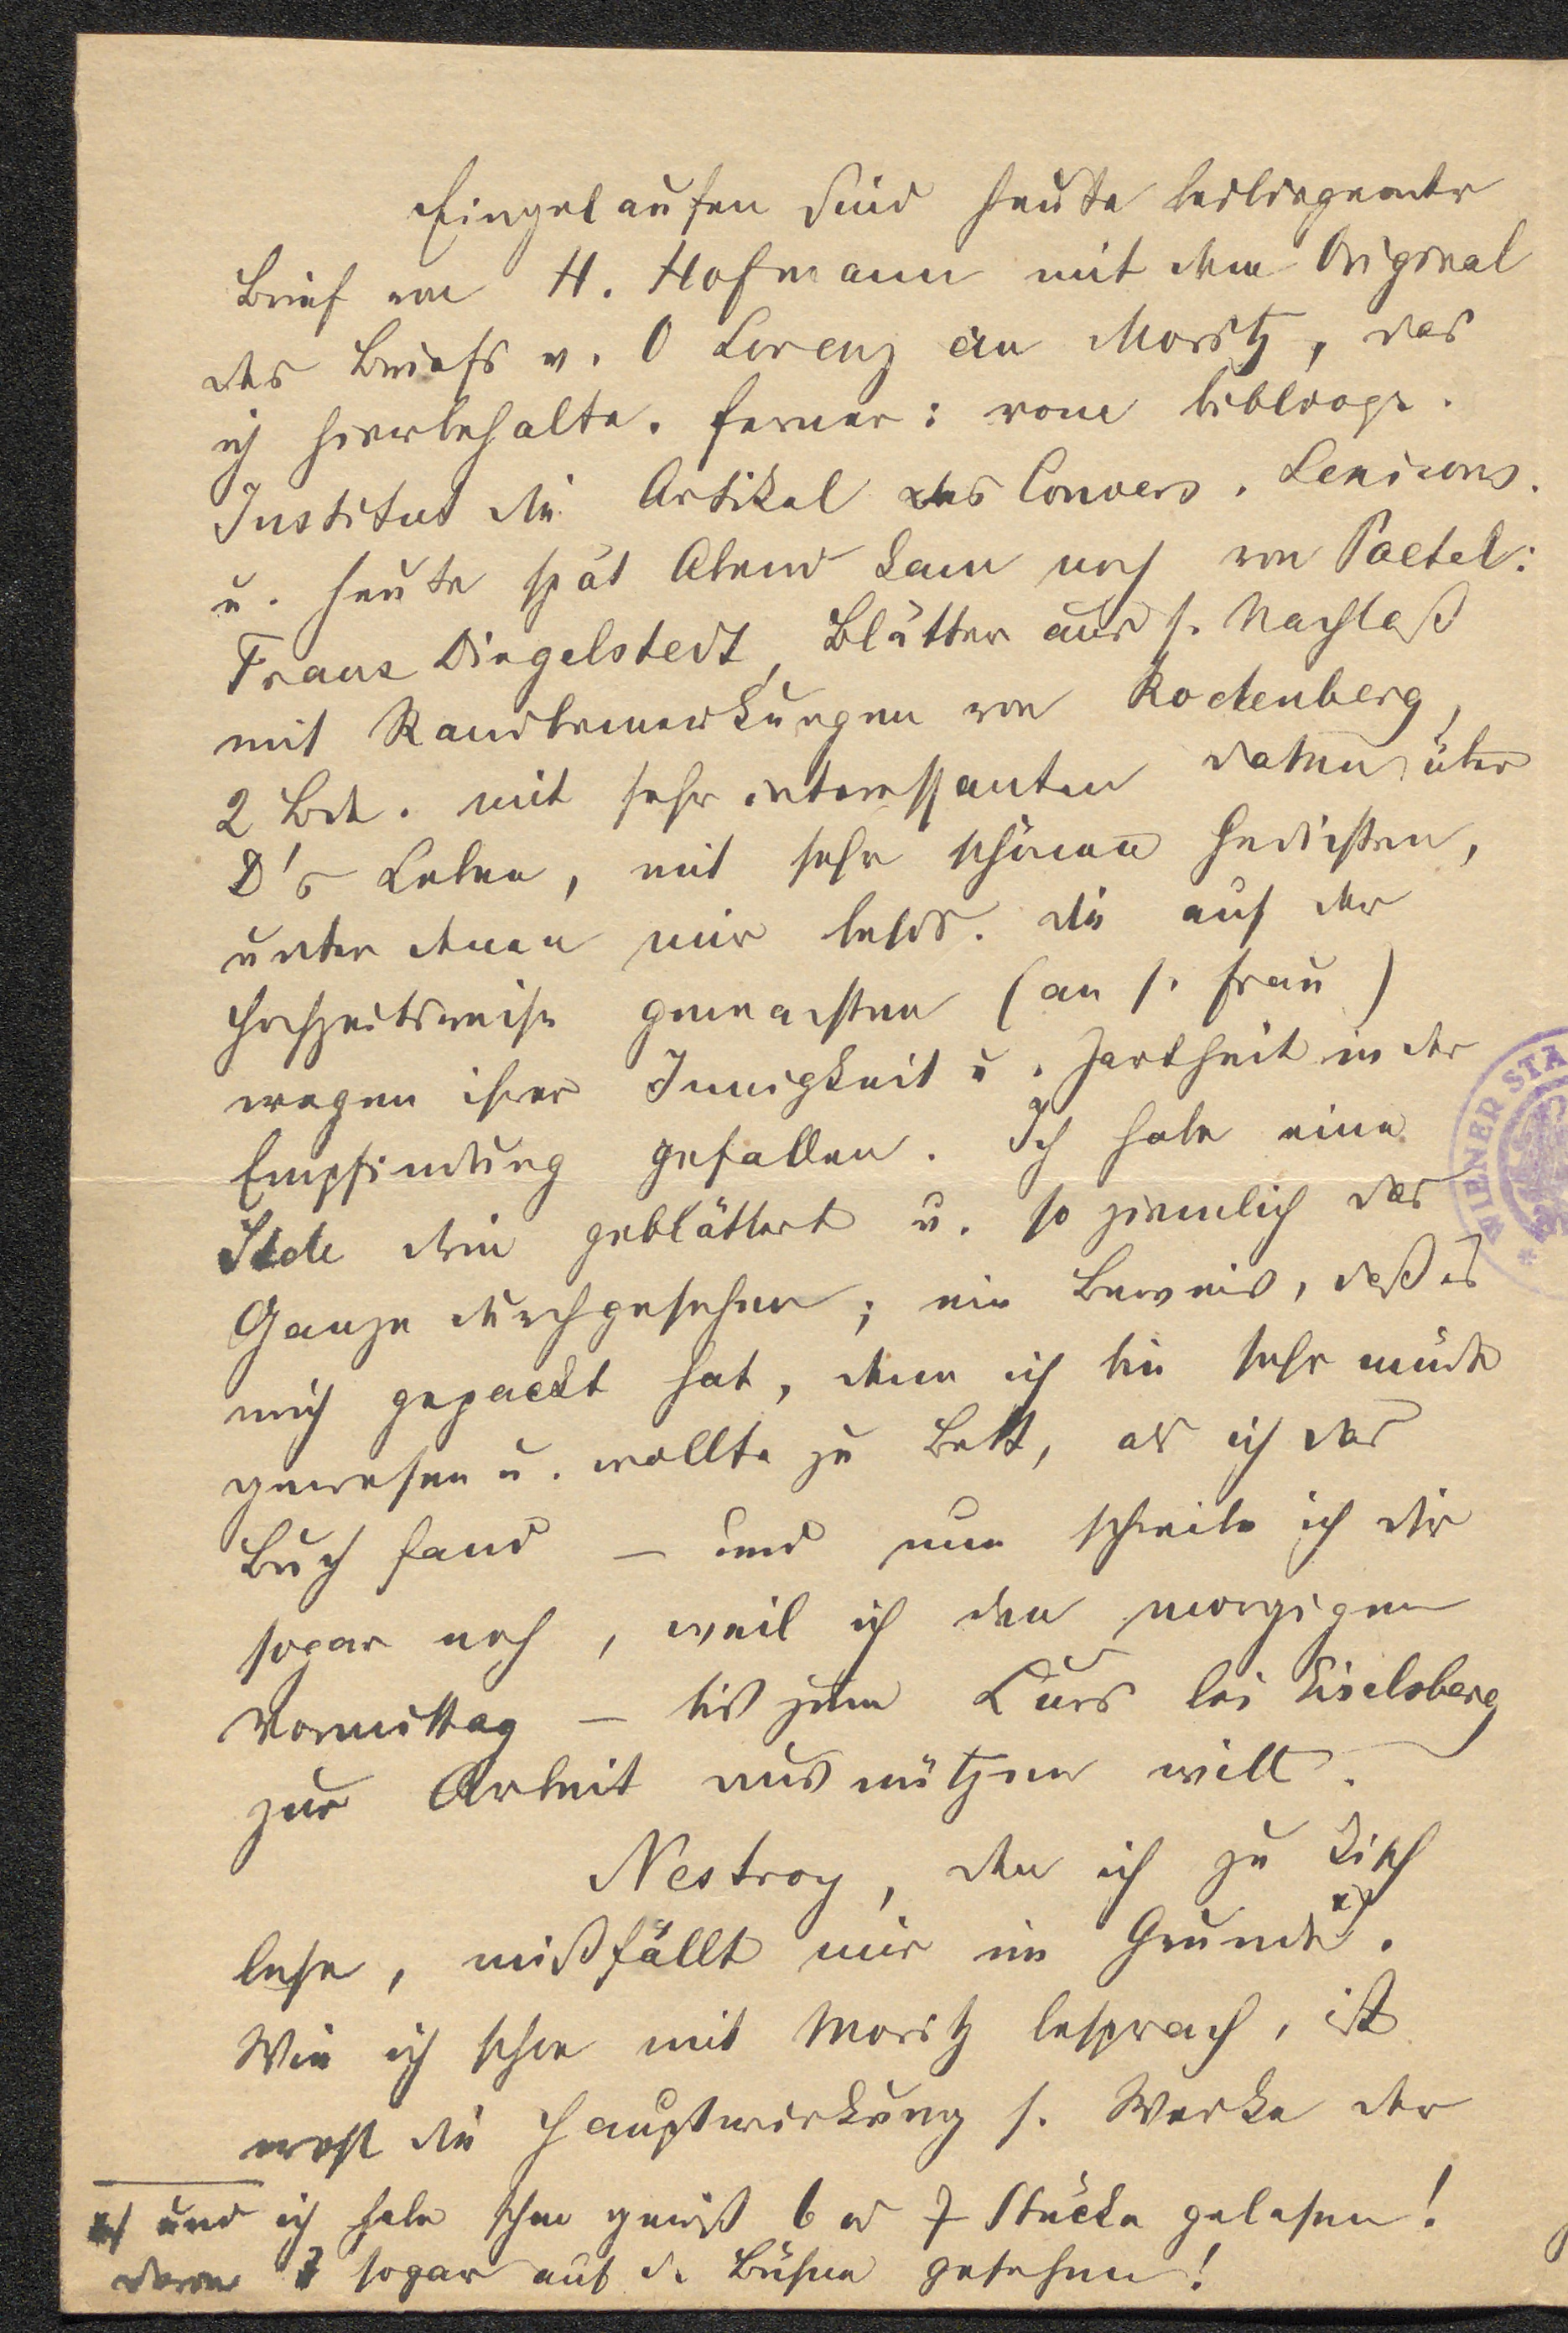 Eingelaufen sind heute beiliegender
Brief von H. Hofmann mit dem Original
des Briefs v. O Lorenz an Moritz, das
ich hierbehalte. Ferner: vom bibliogr.
Institut die Artikel des Convers. Lexicons.
u. heute spät Abend kam noch von Paetel:
Franz Dingelstedt, Blätter aus s. Nachlaß
mit Randbemerkungen von Rodenberg,
2 Bde. mit sehr interessanten Daten über
D's Leben, mit sehr schönen Gedichten,
unter denen mir bes. die auf der
Hochzeitsreise gemachten (an s. Frau)
wegen ihrer Innigkeit u. Zartheit in der
Empfindung gefallen. Ich habe eine
Stde drin geblättert u. so ziemlich das
Ganze durchgesehen; ein Beweis, daß es
mich gepackt hat, denn ich bin sehr müde
gewesen u. wollte zu Bett, als ich das
Buch fand – und nun schreibe ich dir
sogar noch, weil ich den morgigen
Vormittag – bis zum Curs bei Eiselsberg
zur Arbeit ausnützen will.
Nestroy, den ich zu Tisch
lese, mißfällt mir im Grunde x).
Wie ich schon mit Moritz besprach, ist
wohl die Hauptwirkung s. Werke der
x) und ich habe schon gewiß 6 od 7 Stücke gelesen!
davon sogar auf d. Bühne gesehen!
WIENER STA